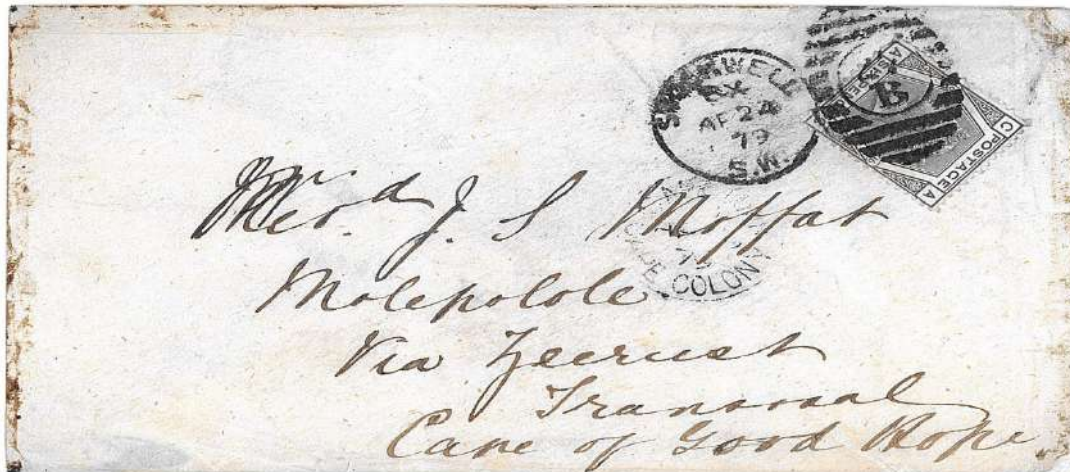 S.W.
AP 24
79
B
C POSTAGE A
COLONY
Revd. J. S Moffat
Molepolole
Via Zeerust
Transvaal
Cape of Good Hope